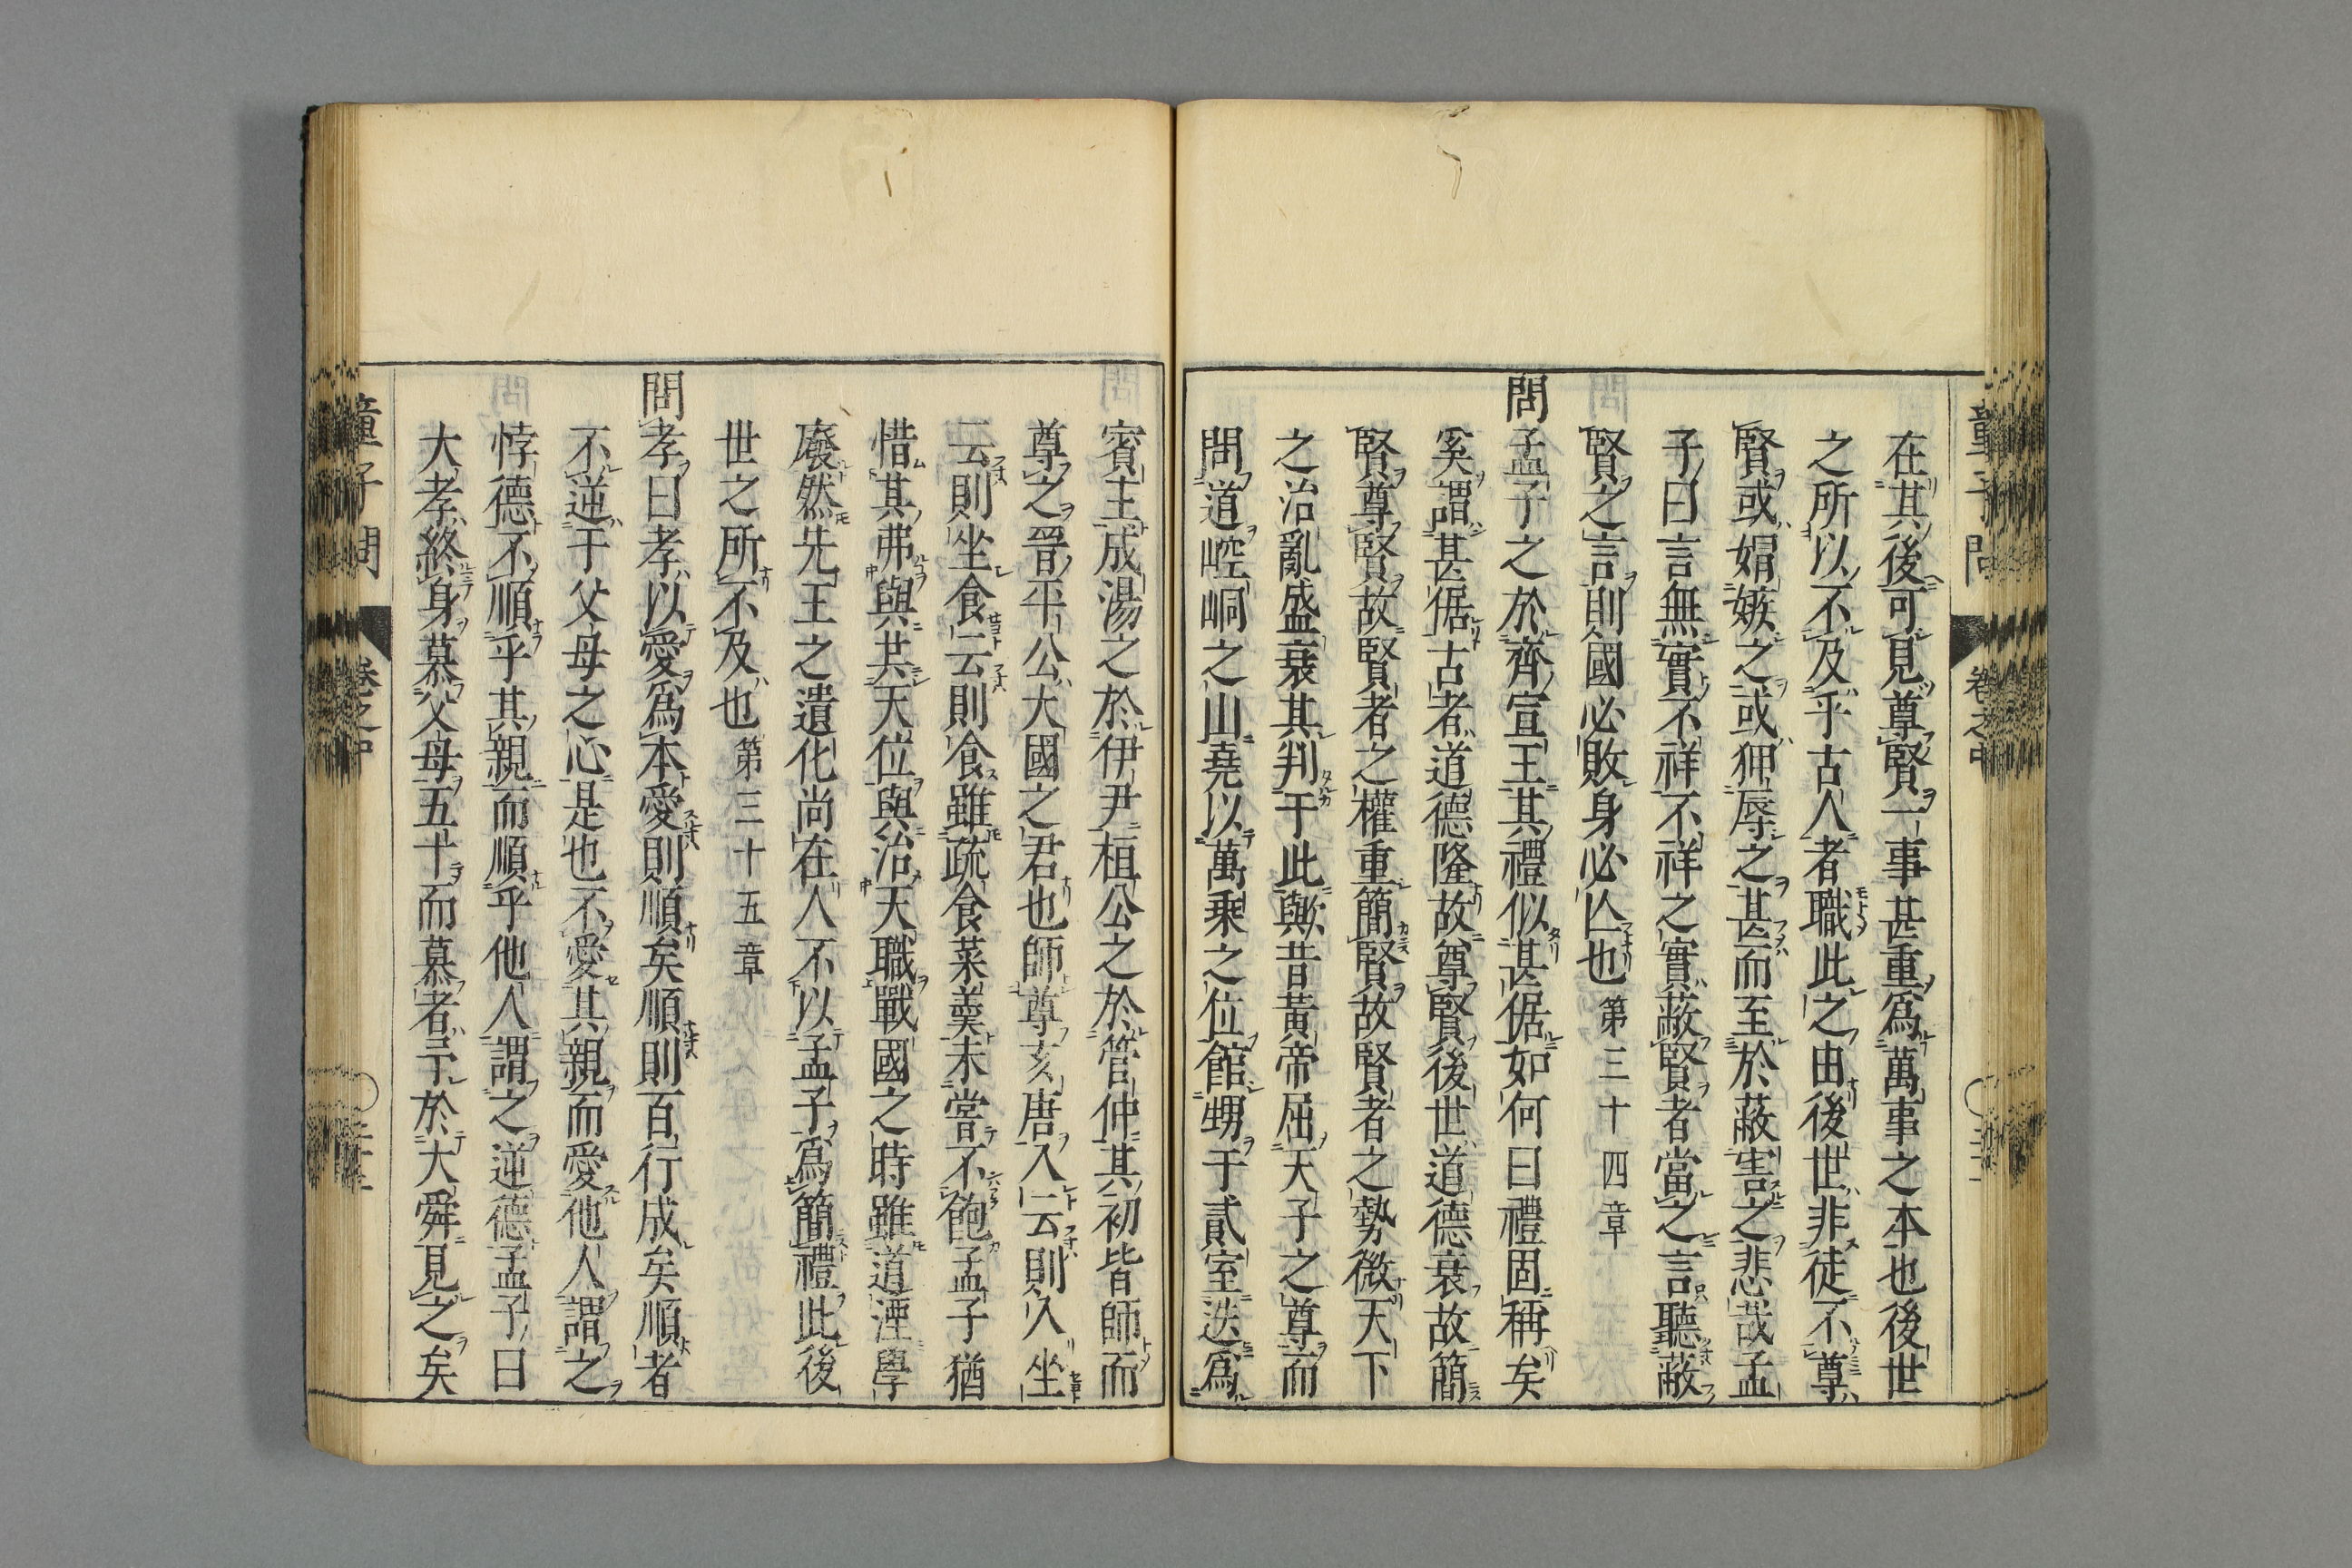 在其後可見尊賢一事甚重爲萬事之本也後世
之所以不及乎古人者職此之由後世非徒不尊
賢或娟嫉之或狎辱之甚而至於蔽害之悲哉孟
子曰言無實不祥不祥之實蔽賢者當之言聽蔽
賢之言則國必敗身必亾也第三十四章
問孟子之於齊宣王其禮似甚倨如何曰禮固稱矣
奚謂甚倨古者道德隆故尊賢後世道德衰故簡
賢尊賢故賢者之權重簡賢故賢者之勢微天下
之治亂盛衰其判于此歟昔黃帝屈天子之尊而
問道崆峒之山堯以萬乘之位館甥于貳室迭爲
賓主成湯之於伊尹桓公之於管仲其初皆師而
尊之晉平公大國之君也師尊亥唐入云則入坐
云則坐食云則食雖疏食菜羹未嘗不飽孟子猶
惜其弗與共天位與治天職戰國之時雖道湮學
廢然先王之遺化尚在人不以孟子爲簡禮此後
世之所不及也第三十五章
問孝曰孝以愛爲本愛則順矣順則百行成矣順者
不逆于父母之心是也不愛其親而愛他人謂之
悖德不順乎其親而順乎他人謂之逆德孟子曰
大孝終身慕父母五十而慕者予於大舜見之矣
童子問
卷之中